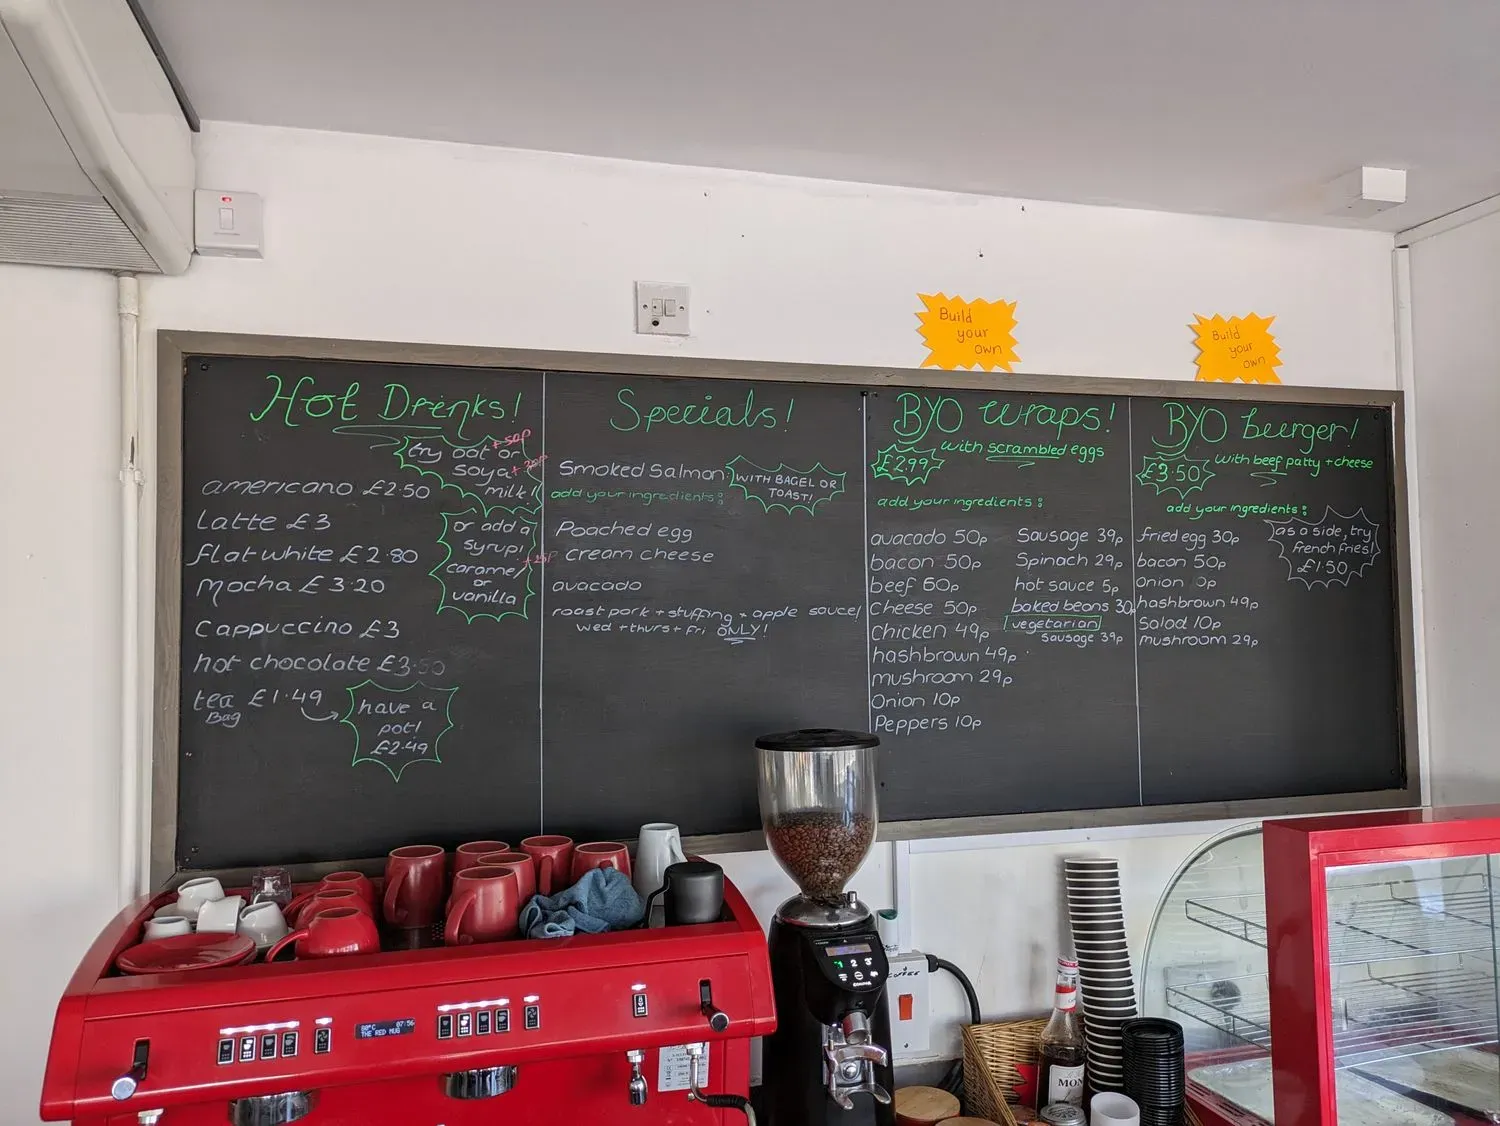 Build
your
own
Build
your
own
Hot Drinks!
try oat or
soya
milk!!
+ 50p
americano £2.50
Latte £3
flat white £2.80
mocha £3.20
cappuccino £3
hot chocolate £3.50
tea £1.49
Bag
or add a
syrup!
caramel
or
vanilla
have a
pot!
£2.49
Specials!
Smoked Salmon
WITH BAGEL OR
TOAST!
add your ingredients:
Poached egg
cream cheese
avacado
roast pork + stuffing + apple sauce!
wed + thurs + fri ONLY!
BYO wraps!
£2.99
with scrambled eggs
add your ingredients:
avacado 50p
bacon 50p
beef 60p
cheese 50p
chicken 49p
hashbrown 49p
mushroom 29p
Onion 10p
Peppers 10p
Sausage 39p
Spinach 29p
hot sauce 5p
baked beans 30p
vegetarian
sausage 39p
BYO burger!
£3.50
with beef patty + cheese
add your ingredients:
fried egg 30p
bacon 50p
onion
hashbrown 49p
Salad 10p
mushroom 29p
as a side, try
french fries!
£1.50
07:56
THE RED MUG
COFFEE
MON